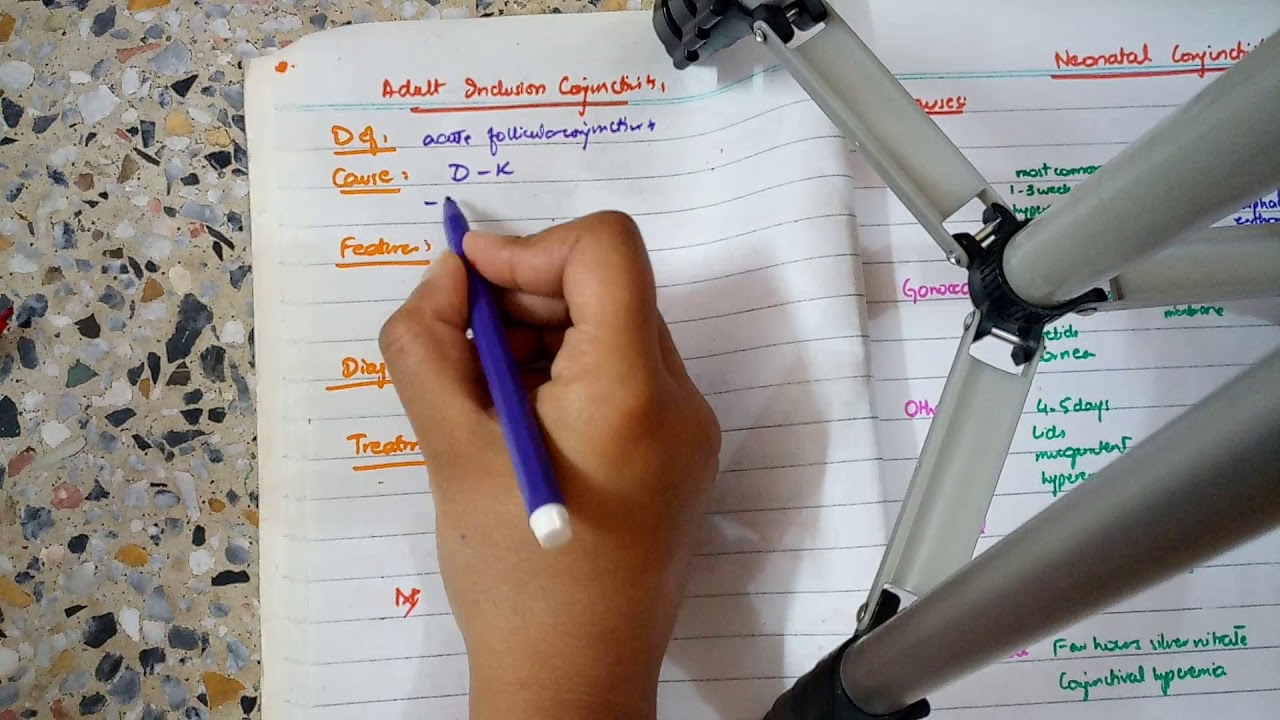 Adult Inclusion Conjinctivitis,
Def. acute follicular conjinctivits
Cause: D-K
-
Features:
Diag
Treatm
Neonatal Conjincti
auses:
most common
1-3 week
hyper
Gonococ
membrane
lids
ornea
Oth
4-5 days
Lids
mucopurulent
hypere
Few hours silver nitrate
Conjinctival hyperemia